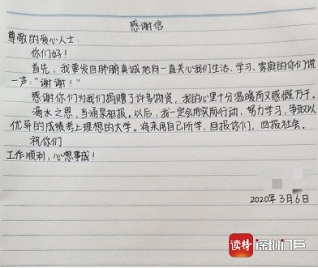 感谢信
尊敬的爱心人士:
你们好!
首先,我要发自肺腑真诚地向一直关心我们生活、学习、家庭的你们说
一声:"谢谢!"
感谢你们为我们捐赠了许多物资,我的心里十分温暖而又感慨万千。
滴水之恩,当涌泉相报。以后,我一定会用实际行动,努力学习,争取以
优异的成绩考上理想的大学。将来用自己所学,回报你们,回报社会。
祝你们
工作顺利,心想事成!
2020年3月6日
读特 深圳门户